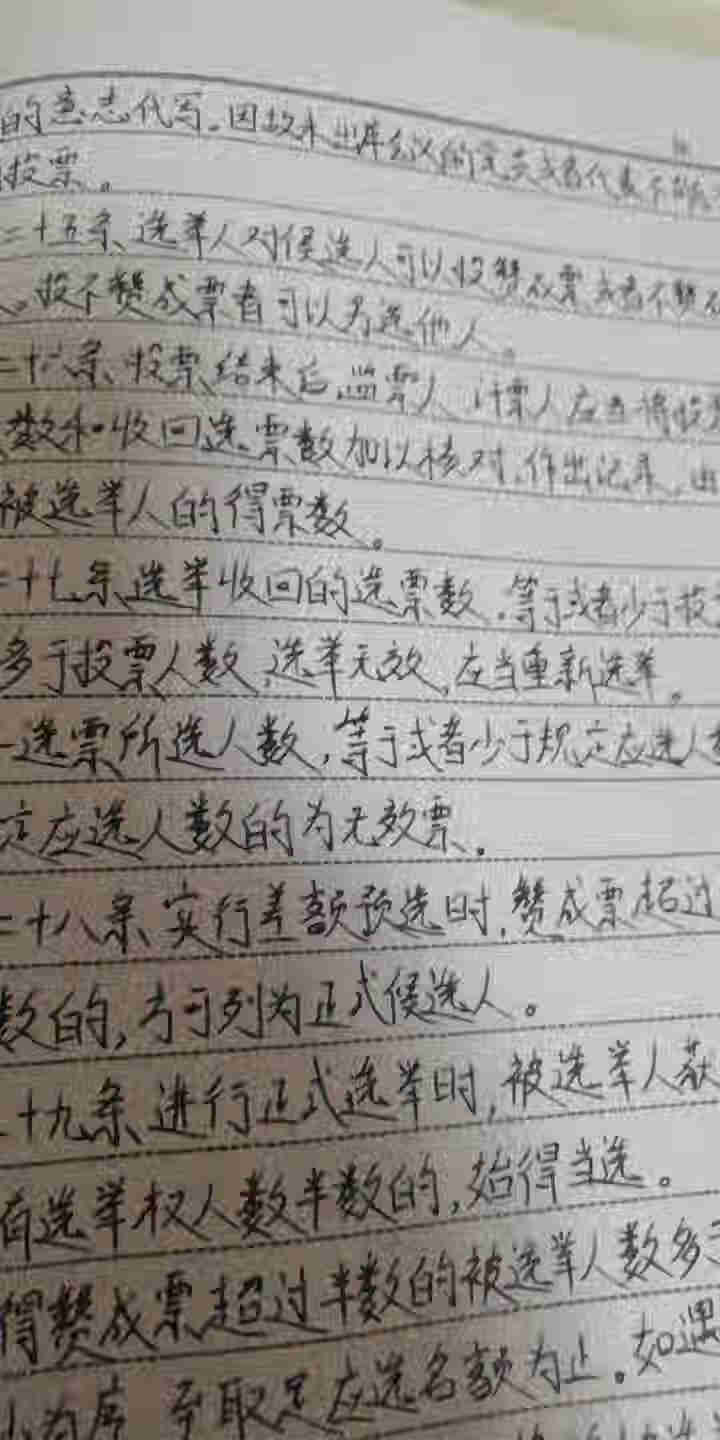 的意志代写。因故未出席会议的党员或者代表不能
投票。
二十五条 选举人对候选人可以投赞成票或者不赞成
。投不赞成票者可以另选他人。
二十六条 投票结束后,监票人、计票人应当将投票
数和收回选票数加以核对,作出记录,由
被选举人的得票数。
二十七条 选举收回的选票数,等于或者少于投票
多于投票人数,选举无效,应当重新选举。
一选票所选人数,等于或者少于规定应选人数
定应选人数的为无效票。
二十八条 实行差额预选时,赞成票超过
数的,方可列为正式候选人。
十九条 进行正式选举时,被选举人获
有选举权人数半数的,始得当选。
得赞成票超过半数的被选举人数多于
为序,至取足应选名额为止。如遇